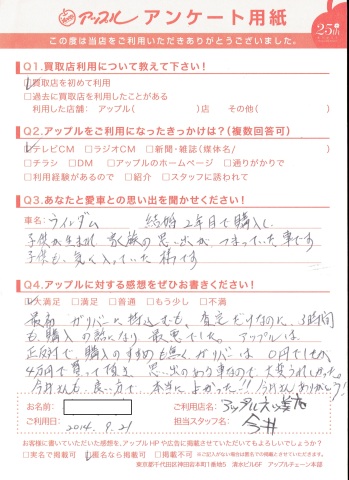 アップル アンケート用紙 25th
この度は当店をご利用いただきありがとうございました。
Q1.買取店利用について教えて下さい！
□買取店を初めて利用
□過去に買取店を利用したことがある
利用した店舗： アップル（ ）店 その他（ ）
Q2.アップルをご利用になったきっかけは？（複数回答可）
□テレビCM □ラジオCM □新聞・雑誌（媒体名/ ）
□チラシ □DM □アップルのホームページ □通りがかりで
□利用経験があるので □紹介 □スタッフに誘われて
Q3.あなたと愛車との思い出を聞かせください！
車名：ウィンダム 結婚2年目で購入し、
子供が生まれ 家族の思い出が つまっていた車です
子供も、気に入っていた 様です
Q4.アップルに対する感想をぜひお書きください！
□大満足 □満足 □普通 □もう少し □不満
最初 ガリバーに持込むも、査定だけなのに、3時間
も、購入の話になり 最悪でした。 アップルは、
正反対で、購入のすすめも無く、ガリバーは 0円でしたが
4万円で買って頂き、思い出のある車なので、大変うれしかった。
今井さんも、良い方で 本当に よかった!! 今井さんありがとう!
お名前：
ご利用店名：アップル
ご利用日：2014. 9. 21
担当スタッフ名：今井
お客様に書いていただいた感想を、アップルHPや広告に掲載させていただいてもよろしいでしょうか？
□実名で掲載可 □匿名なら掲載可 □不可 ※ご記入がない場合は匿名での掲載とさせていただきます。
東京都千代田区神田岩本町1番地5 清水ビル6F アップルチェーン本部